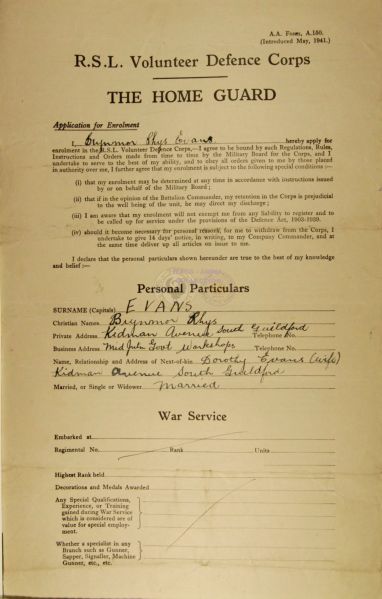 A.A. Form, A.150.
(Introduced May, 1941.)
R.S.L. Volunteer Defence Corps
THE HOME GUARD
Application for Enrolment
I, Brynmor Rhys Evans hereby apply for
enrolment in the R.S.L. Volunteer Defence Corps,—I agree to be bound by such Regulations, Rules,
Instructions and Orders made from time to time by the Military Board for the Corps, and I
undertake to serve to the best of my ability, and to obey all orders given to me by those placed
in authority over me, I further agree that my enrolment is subject to the following special conditions:—
(i) that my enrolment may be determined at any time in accordance with instructions issued
by or on behalf of the Military Board;
(ii) that if in the opinion of the Battalion Commander, my retention in the Corps is prejudicial
to the well being of the unit, he may direct my discharge;
(iii) I am aware that my enrolment will not exempt me from any liability to register and to
be called up for service under the provisions of the Defence Act, 1903-1939.
(iv) should it become necessary for personal reasons, for me to withdraw from the Corps, I
undertake to give 14 days' notice, in writing, to my Company Commander, and at
the same time deliver up all articles on issue to me.
I declare that the personal particulars shown hereunder are true to the best of my knowledge
and belief:—
Personal Particulars
SURNAME (Capitals) EVANS
Christian Names Brynmor Rhys
Private Address Kidman Avenue South Guildford Telephone No.
Business Address Mid Junc Govt Workshops Telephone No.
Name, Relationship and Address of Next-of-kin Dorothy Evans (wife)
Kidman Avenue South Guildford
Married, or Single or Widower Married
War Service
Embarked at
Regimental No. Rank Units
Highest Rank held
Decorations and Medals Awarded
Any Special Qualifications,
Experience, or Training
gained during War Service
which is considered are of
value for special employ-
ment.
Whether a specialist in any
Branch such as Gunner,
Sapper, Signaller, Machine
Gunner, etc., etc.